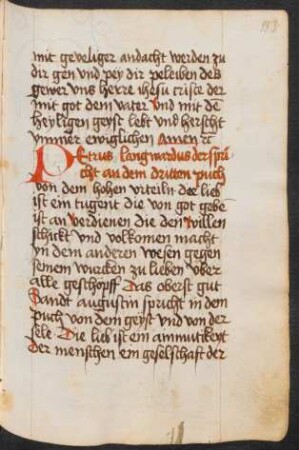 183
mit geveliger andacht werden zu
dir gen vnd pey dir peleiben des
gewer vns herre ihesu crist der
mit got dem vater vnd mit dē
heyligen geyst lebt vnd herscht
ymmer ewiglichen Amen
Petrus langwardus der spri
cht an dem dritten puch
von dem hohen vrteiln die lieb
ist ein tugent die von got gebē
ist an verdienen die den willen
schickt vnd volkomen macht
yn dem anderen wesen gegen
seinem wurcken zu lieben vber
alle geschopff Das oberst gut
Sandt augustin spricht in dem
puch von dem geyst vnd von der
sele Die lieb ist ein anmutikeyt
Der menschen ein geselschaft der